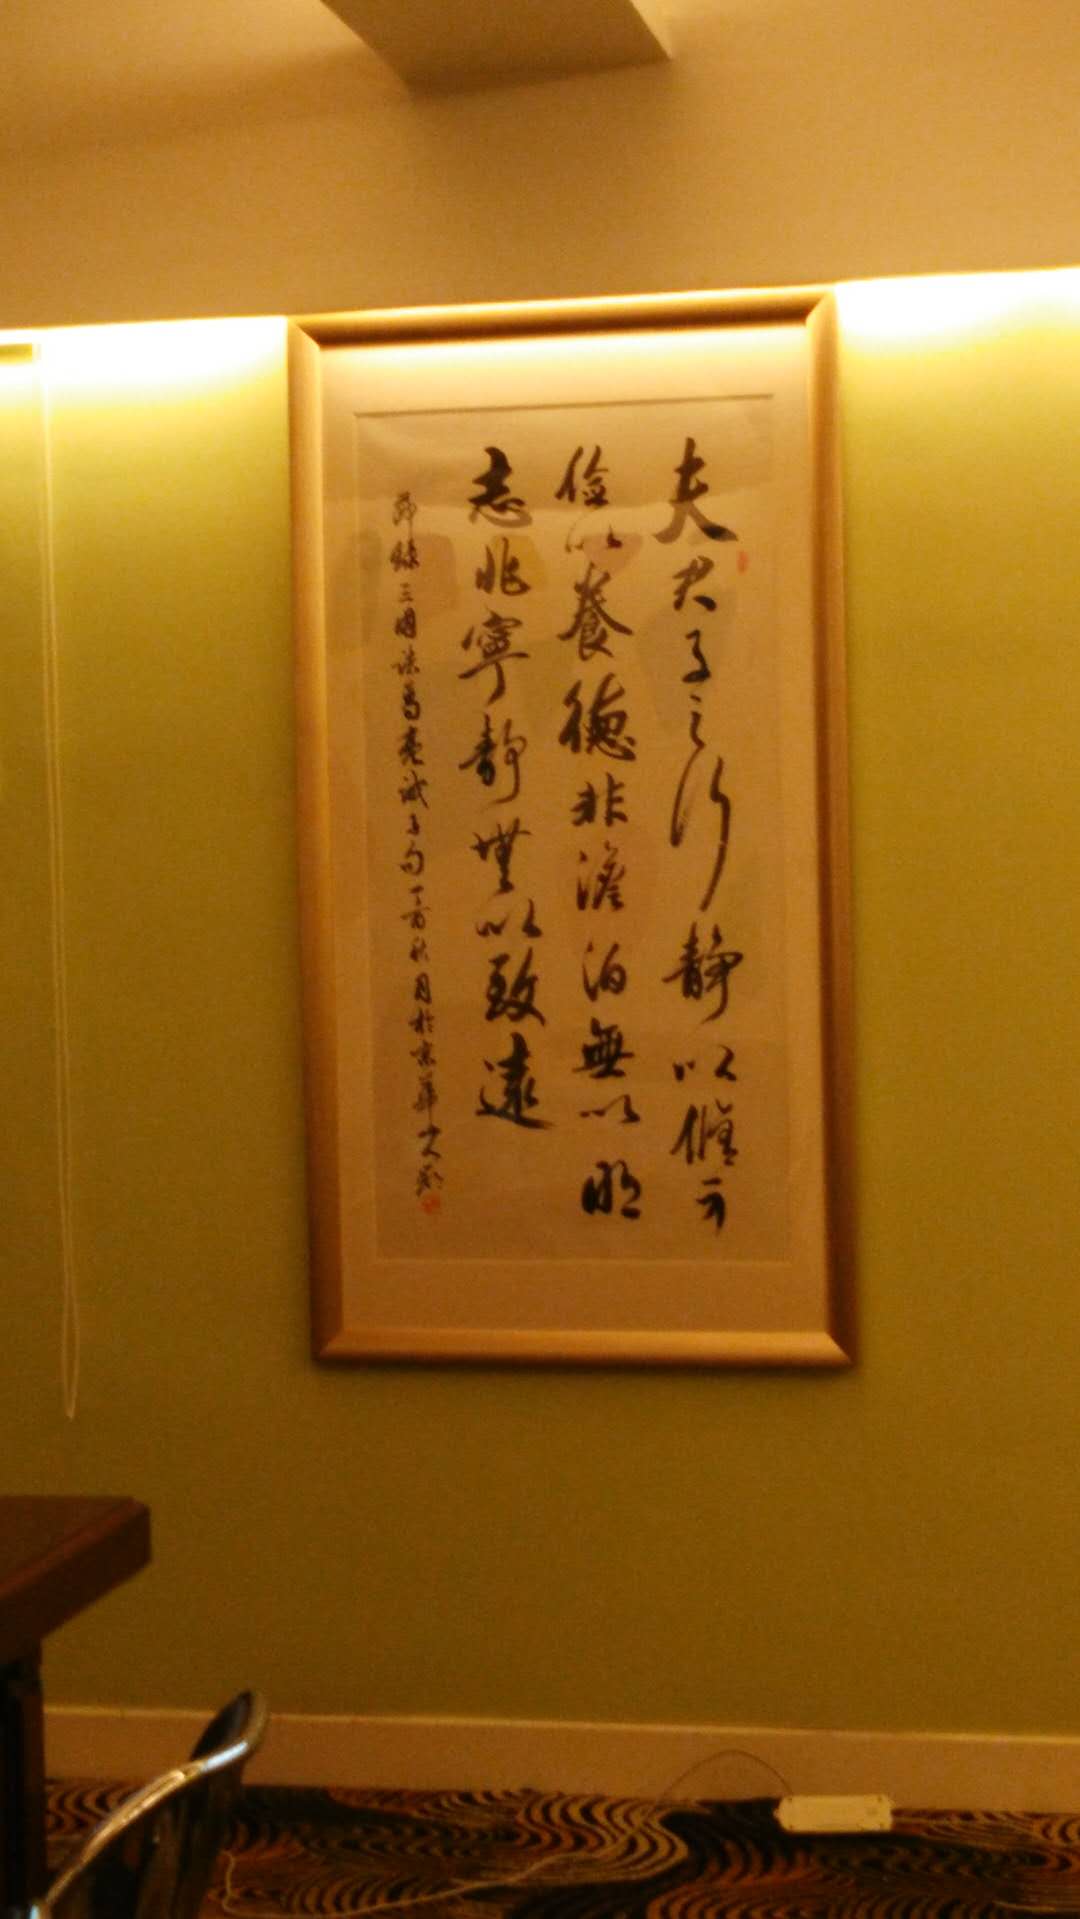 夫君子之行静以修身
儉以養德非澹泊無以明
志非寧静無以致遠
節錄三國諸葛亮誡子句丁酉秋月於京華